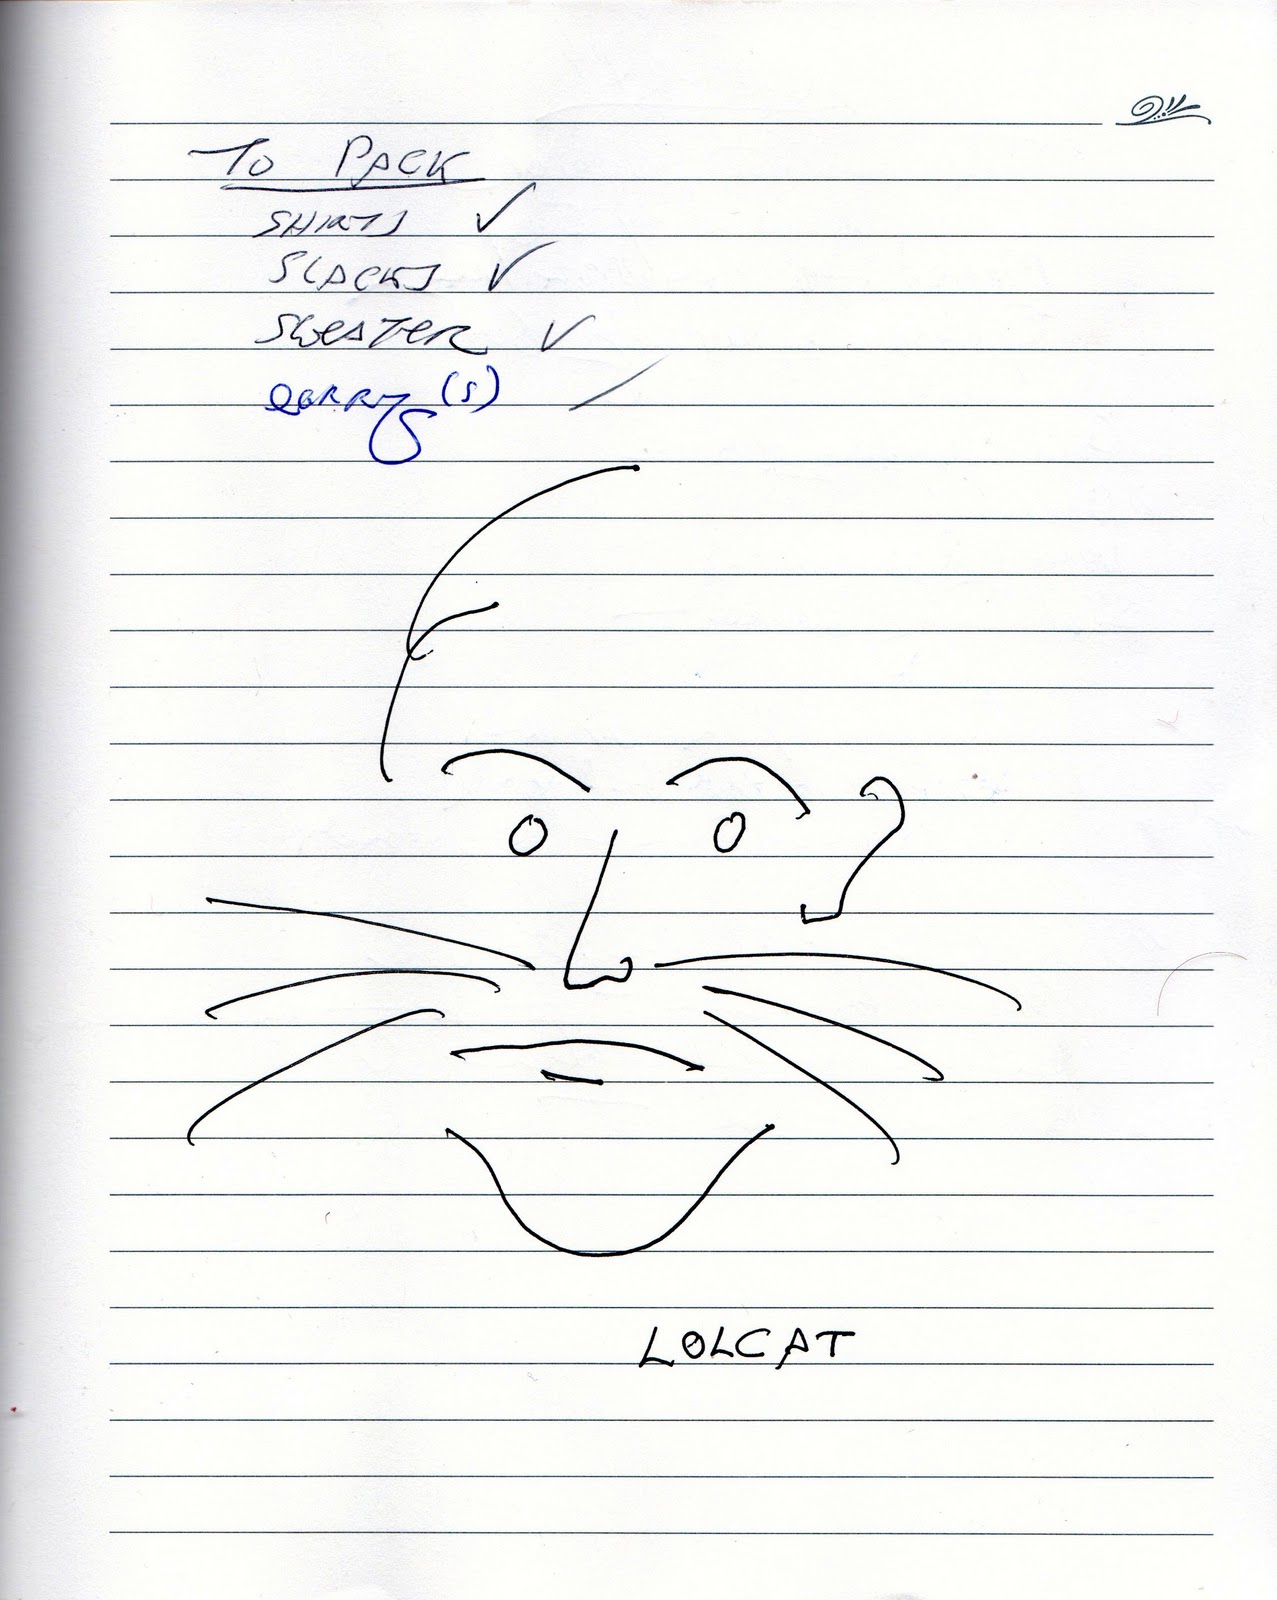 To PACK
SHIRTS ✓
SLACKS ✓
SWEATER ✓
(s)
LOLCAT